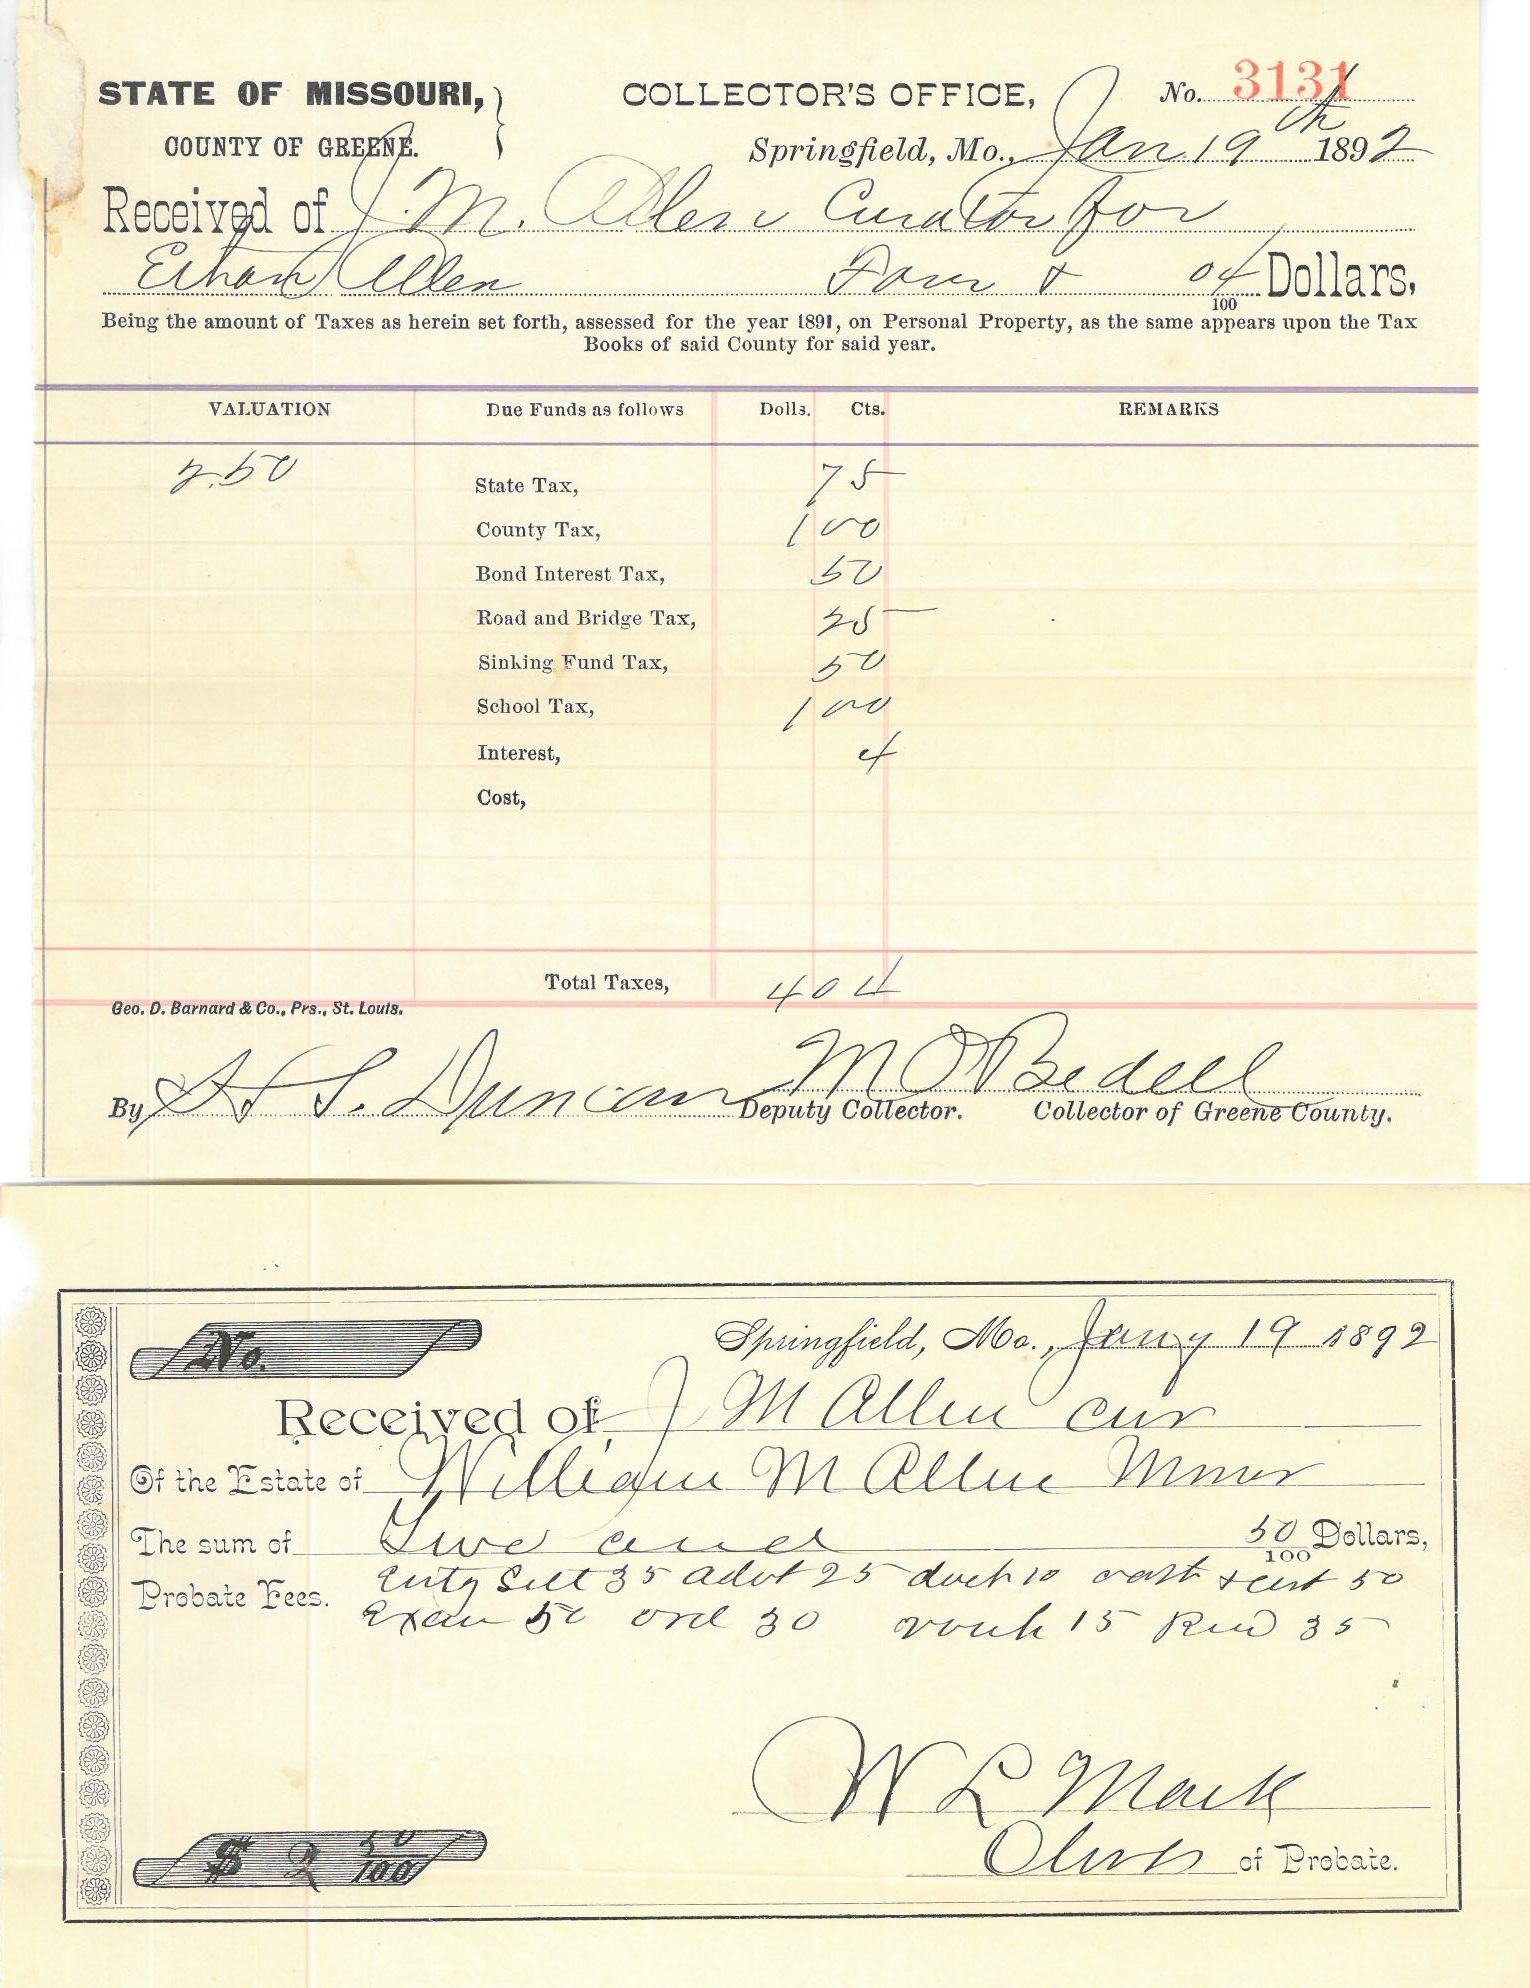 STATE OF MISSOURI, COLLECTOR'S OFFICE, No. 3131
COUNTY OF GREENE. Springfield, Mo., Jan 19th 1892
Received of J. M. Allen Curator for
Ethan Allen Four & 04/100 Dollars,
Being the amount of Taxes as herein set forth, assessed for the year 1891, on Personal Property, as the same appears upon the Tax
Books of said County for said year.
VALUATION Due Funds as follows Dolls. Cts. REMARKS
250 State Tax, 75
County Tax, 1 00
Bond Interest Tax, 50
Road and Bridge Tax, 25
Sinking Fund Tax, 50
School Tax, 1 00
Interest, 4
Cost,
Total Taxes, 4 04
Geo. D. Barnard & Co., Prs., St. Louis.
M O Bedell
By S. Duncan Deputy Collector. Collector of Greene County.
No. Springfield, Mo., Jany 19 1892
Received of J M Allen cur
Of the Estate of William M Allen Minor
The sum of Two and 50/100 Dollars,
Probate Fees. Entg Sett 35 advt 25 dock 10 oath & cert 50
Exam 50 ord 30 vouch 15 Rec 35
W L Mack
$ 2 50/100 of Probate.